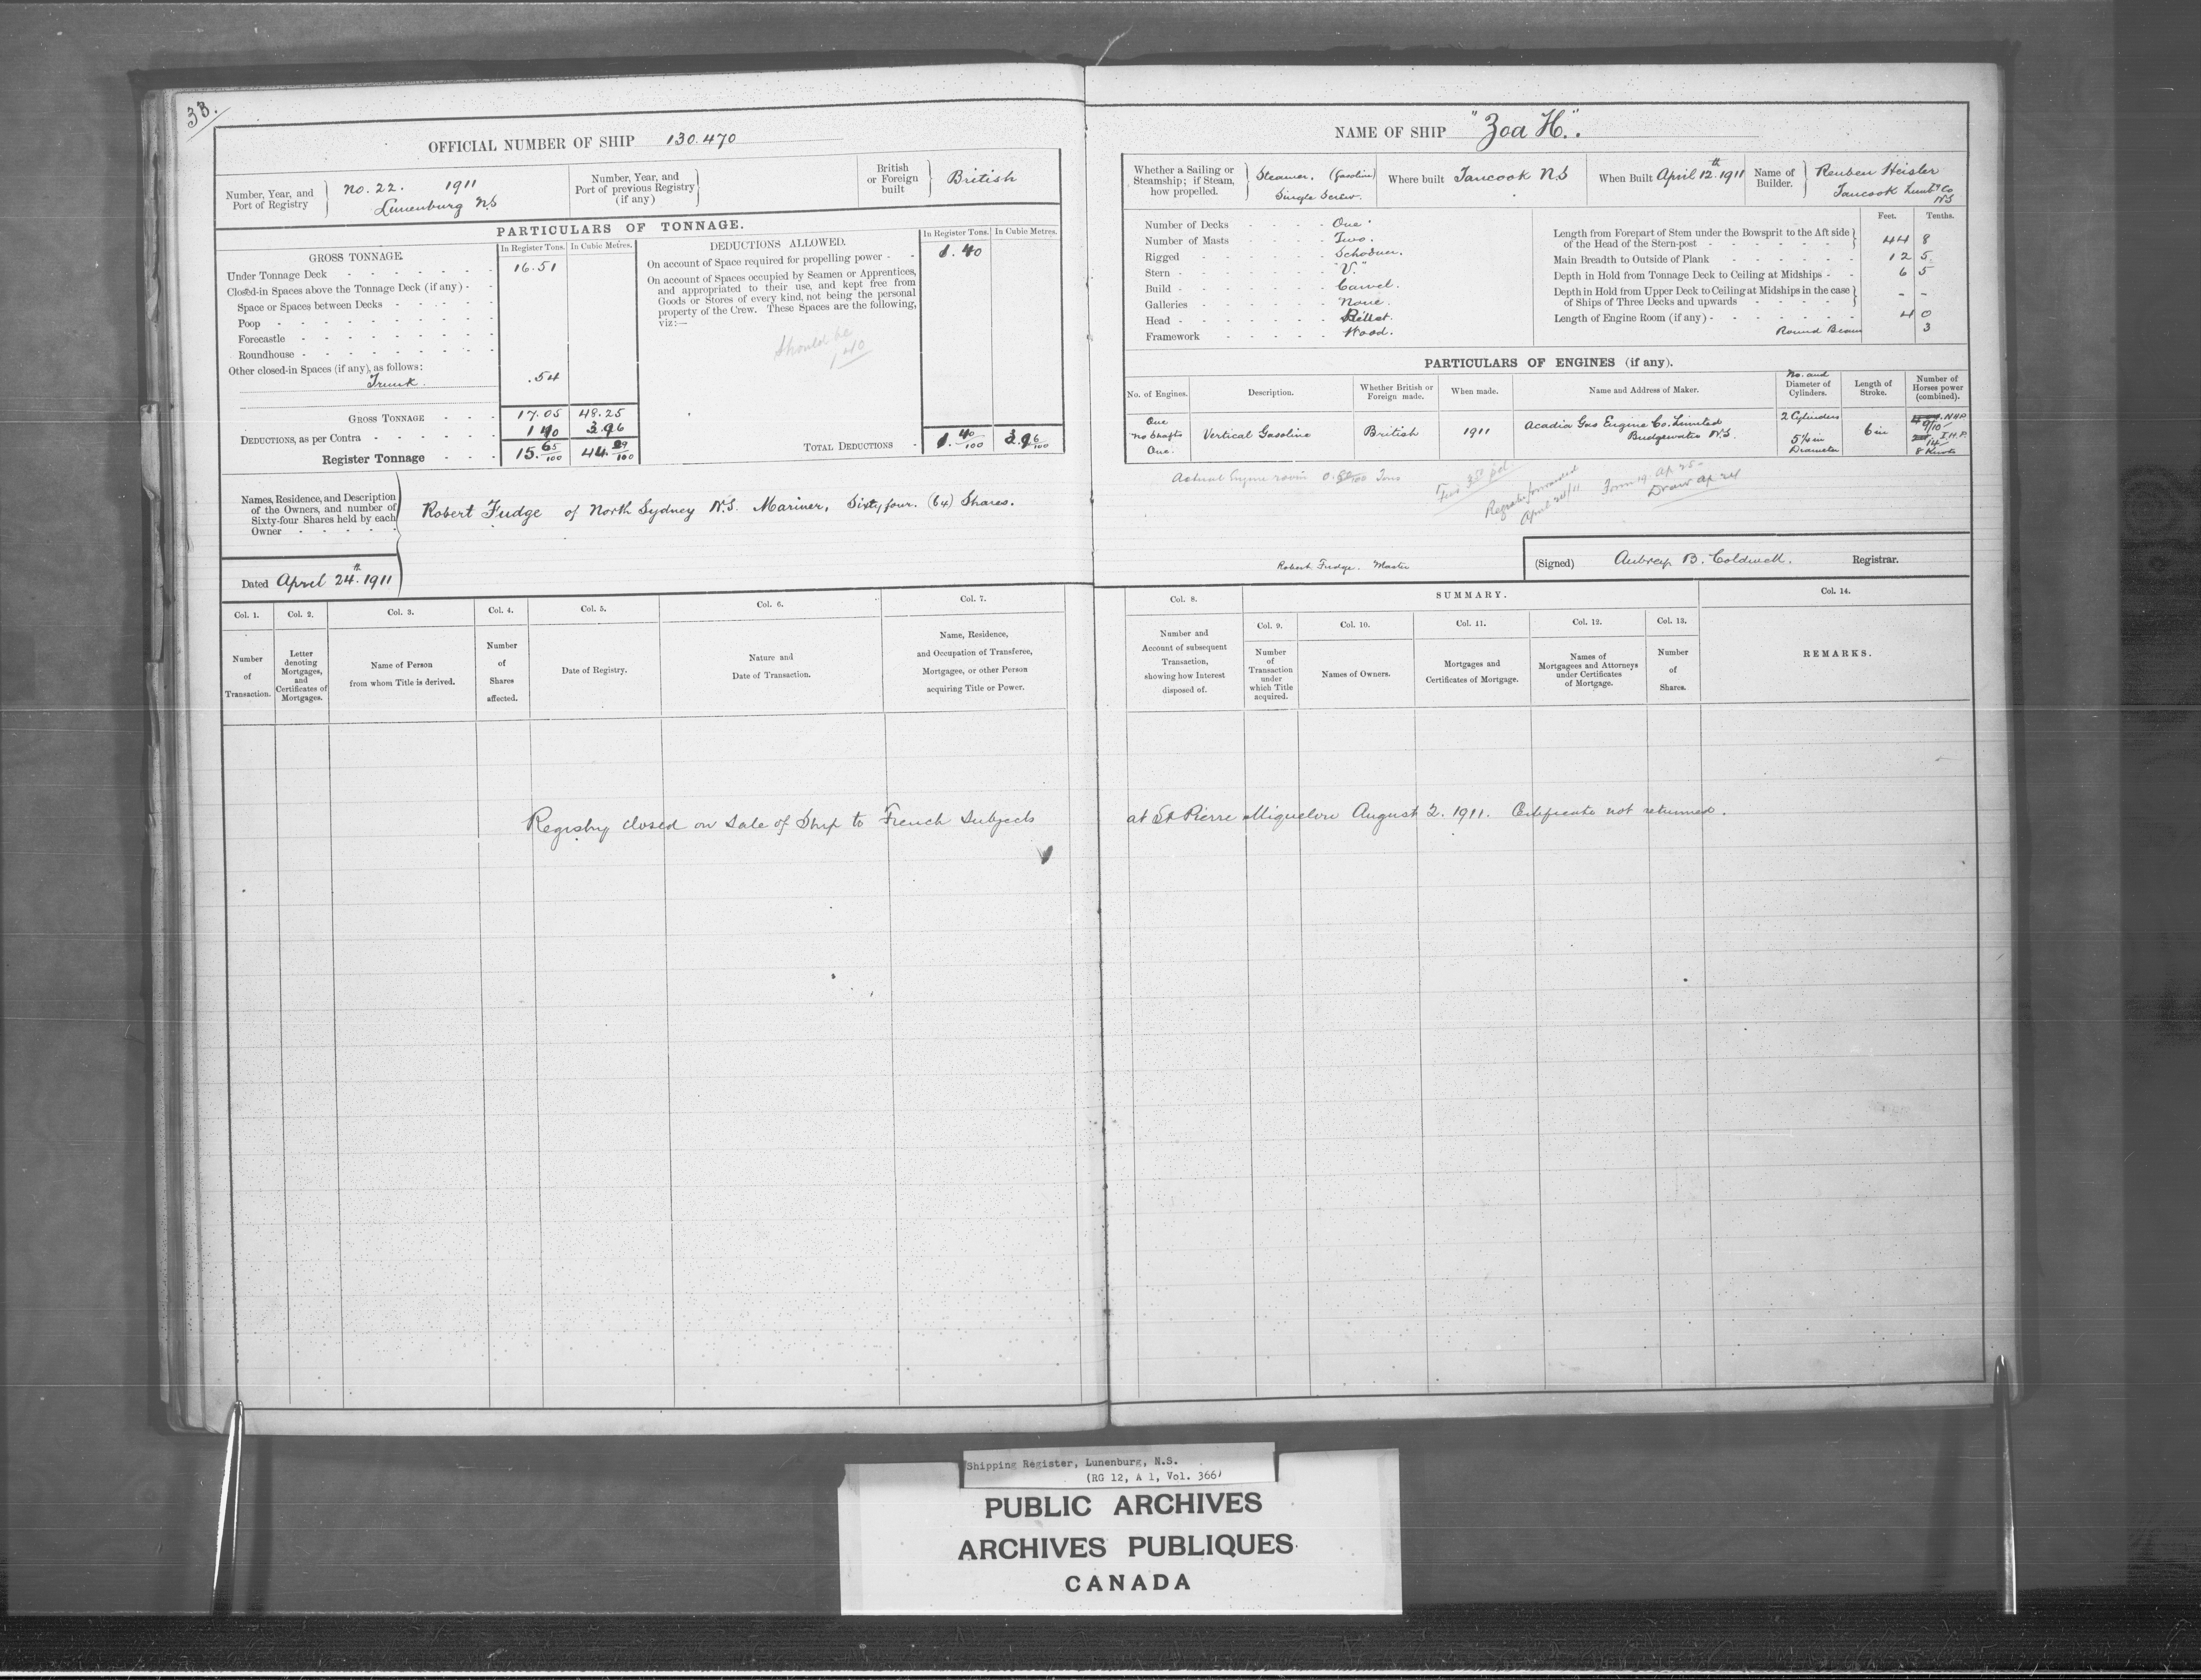 33.
OFFICIAL NUMBER OF SHIP 130.470
Number, Year, and Port of Registry } No. 22. 1911 Lunenburg N.S
Number, Year, and Port of previous Registry (if any) }
British or Foreign built } British
PARTICULARS OF TONNAGE.
GROSS TONNAGE. In Register Tons. In Cubic Metres.
Under Tonnage Deck - - - - - - 16.51
Closed-in Spaces above the Tonnage Deck (if any) - -
Space or Spaces between Decks - - - - -
Poop - - - - - - - - -
Forecastle - - - - - - - -
Roundhouse - - - - - - - -
Other closed-in Spaces (if any), as follows:
Trunk. .54
GROSS TONNAGE - - - 17.05 48.25
DEDUCTIONS, as per Contra - - - - - 1 40 3.96
Register Tonnage - - - 15.65/100 44.29/100
DEDUCTIONS ALLOWED. In Register Tons. In Cubic Metres.
On account of Space required for propelling power - - 1.40
On account of Spaces occupied by Seamen or Apprentices,
and appropriated to their use, and kept free from
Goods or Stores of every kind, not being the personal
property of the Crew. These Spaces are the following,
viz:—
Should be
1 40
TOTAL DEDUCTIONS - 1.40/100 3.96/100
Names, Residence, and Description
of the Owners, and number of
Sixty-four Shares held by each
Owner - - - - -
Robert Fudge of North Sydney N.S. Mariner, Sixty four. (64) Shares.
Dated April 24th. 1911
Col. 1. Col. 2. Col. 3. Col. 4. Col. 5. Col. 6. Col. 7.
Number of Transaction.
Letter denoting Mortgages, and Certificates of Mortgages.
Name of Person from whom Title is derived.
Number of Shares affected.
Date of Registry.
Nature and Date of Transaction.
Name, Residence, and Occupation of Transferee, Mortgagee, or other Person acquiring Title or Power.
NAME OF SHIP "Zoa H.".
Whether a Sailing or Steamship; if Steam, how propelled. } Steamer. (Gasoline) Single Screw.
Where built Tancook N.S
When Built April 12th. 1911
Name of Builder. } Reuben Heisler Tancook Lunbg Co NS
Number of Decks - - - - One.
Number of Masts - - - - Two.
Rigged - - - - - - Schooner.
Stern - - - - - - - "V."
Build - - - - - - - Carvel.
Galleries - - - - - - None.
Head - - - - - - - Billet.
Framework - - - - - Wood.
Feet. Tenths.
Length from Forepart of Stem under the Bowsprit to the Aft side
of the Head of the Stern-post - - - - - - } 44 8
Main Breadth to Outside of Plank - - - - - - 12 5
Depth in Hold from Tonnage Deck to Ceiling at Midships - - 6 5
Depth in Hold from Upper Deck to Ceiling at Midships in the case
of Ships of Three Decks and upwards - - - - - } - -
Length of Engine Room (if any) - - - - - - 4 0
Round Beam 3
PARTICULARS OF ENGINES (if any).
No. of Engines. Description. Whether British or Foreign made. When made. Name and Address of Maker. No. and Diameter of Cylinders. Length of Stroke. Number of Horses power (combined).
One
No Shafts
One.
Vertical Gasoline British 1911
Acadia Gas Engine Co. Limited
Bridgewater N.S.
2 Cylinders
5½ in
Diameter
6 in
9/10 N.H.P.
14 I.H.P.
8 Knots
Actual Engine room Tons
Ap 25.
forwarded
April 24/11
Draw ap 24
Robert Fudge. Master
(Signed) Aubrey B. Coldwell. Registrar.
Col. 8. SUMMARY. Col. 14.
Col. 9. Col. 10. Col. 11. Col. 12. Col. 13.
Number and Account of subsequent Transaction, showing how Interest disposed of.
Number of Transaction under which Title acquired.
Names of Owners.
Mortgages and Certificates of Mortgage.
Names of Mortgagees and Attorneys under Certificates of Mortgage.
Number of Shares.
REMARKS.
Registry closed on Sale of Ship to French Subjects at St Pierre Miquelon August 2. 1911. Certificate not returned.
Shipping Register, Lunenburg, N.S.
(RG 12, A 1, Vol. 366)
PUBLIC ARCHIVES
ARCHIVES PUBLIQUES
CANADA